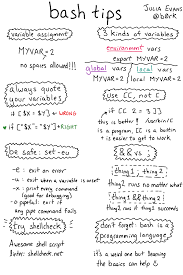 bash tips
JULIA EVANS
@b0rk
variable assignment
MYVAR=2
no spaces allowed!!!
3 kinds of variables
environment vars
export MYVAR=2
global vars
MYVAR=2
local vars
local MYVAR=2
always quote
your variables
if [ "$x" = "$y" ]
RIGHT
WRONG
use [[, not [
if [[ 2 = 3 ]]
this is better!
is a program, [[ is a builtin
+ is easier to get to work.
be safe: set -eu
-e : exit on error
-u : exit when a variable is unset
-x : print every command
(good for debugging)
-o pipefail : exit if
any pipe command fails
&& vs ;
thing1 ; thing2
thing2 runs no matter what
thing1 && thing2
thing2 runs if thing1 succeeds
Try shellcheck!
Awesome shell script
linter. shellcheck.net
don't forget: bash is a
programming language
it's a weird one but learning
the basics can help